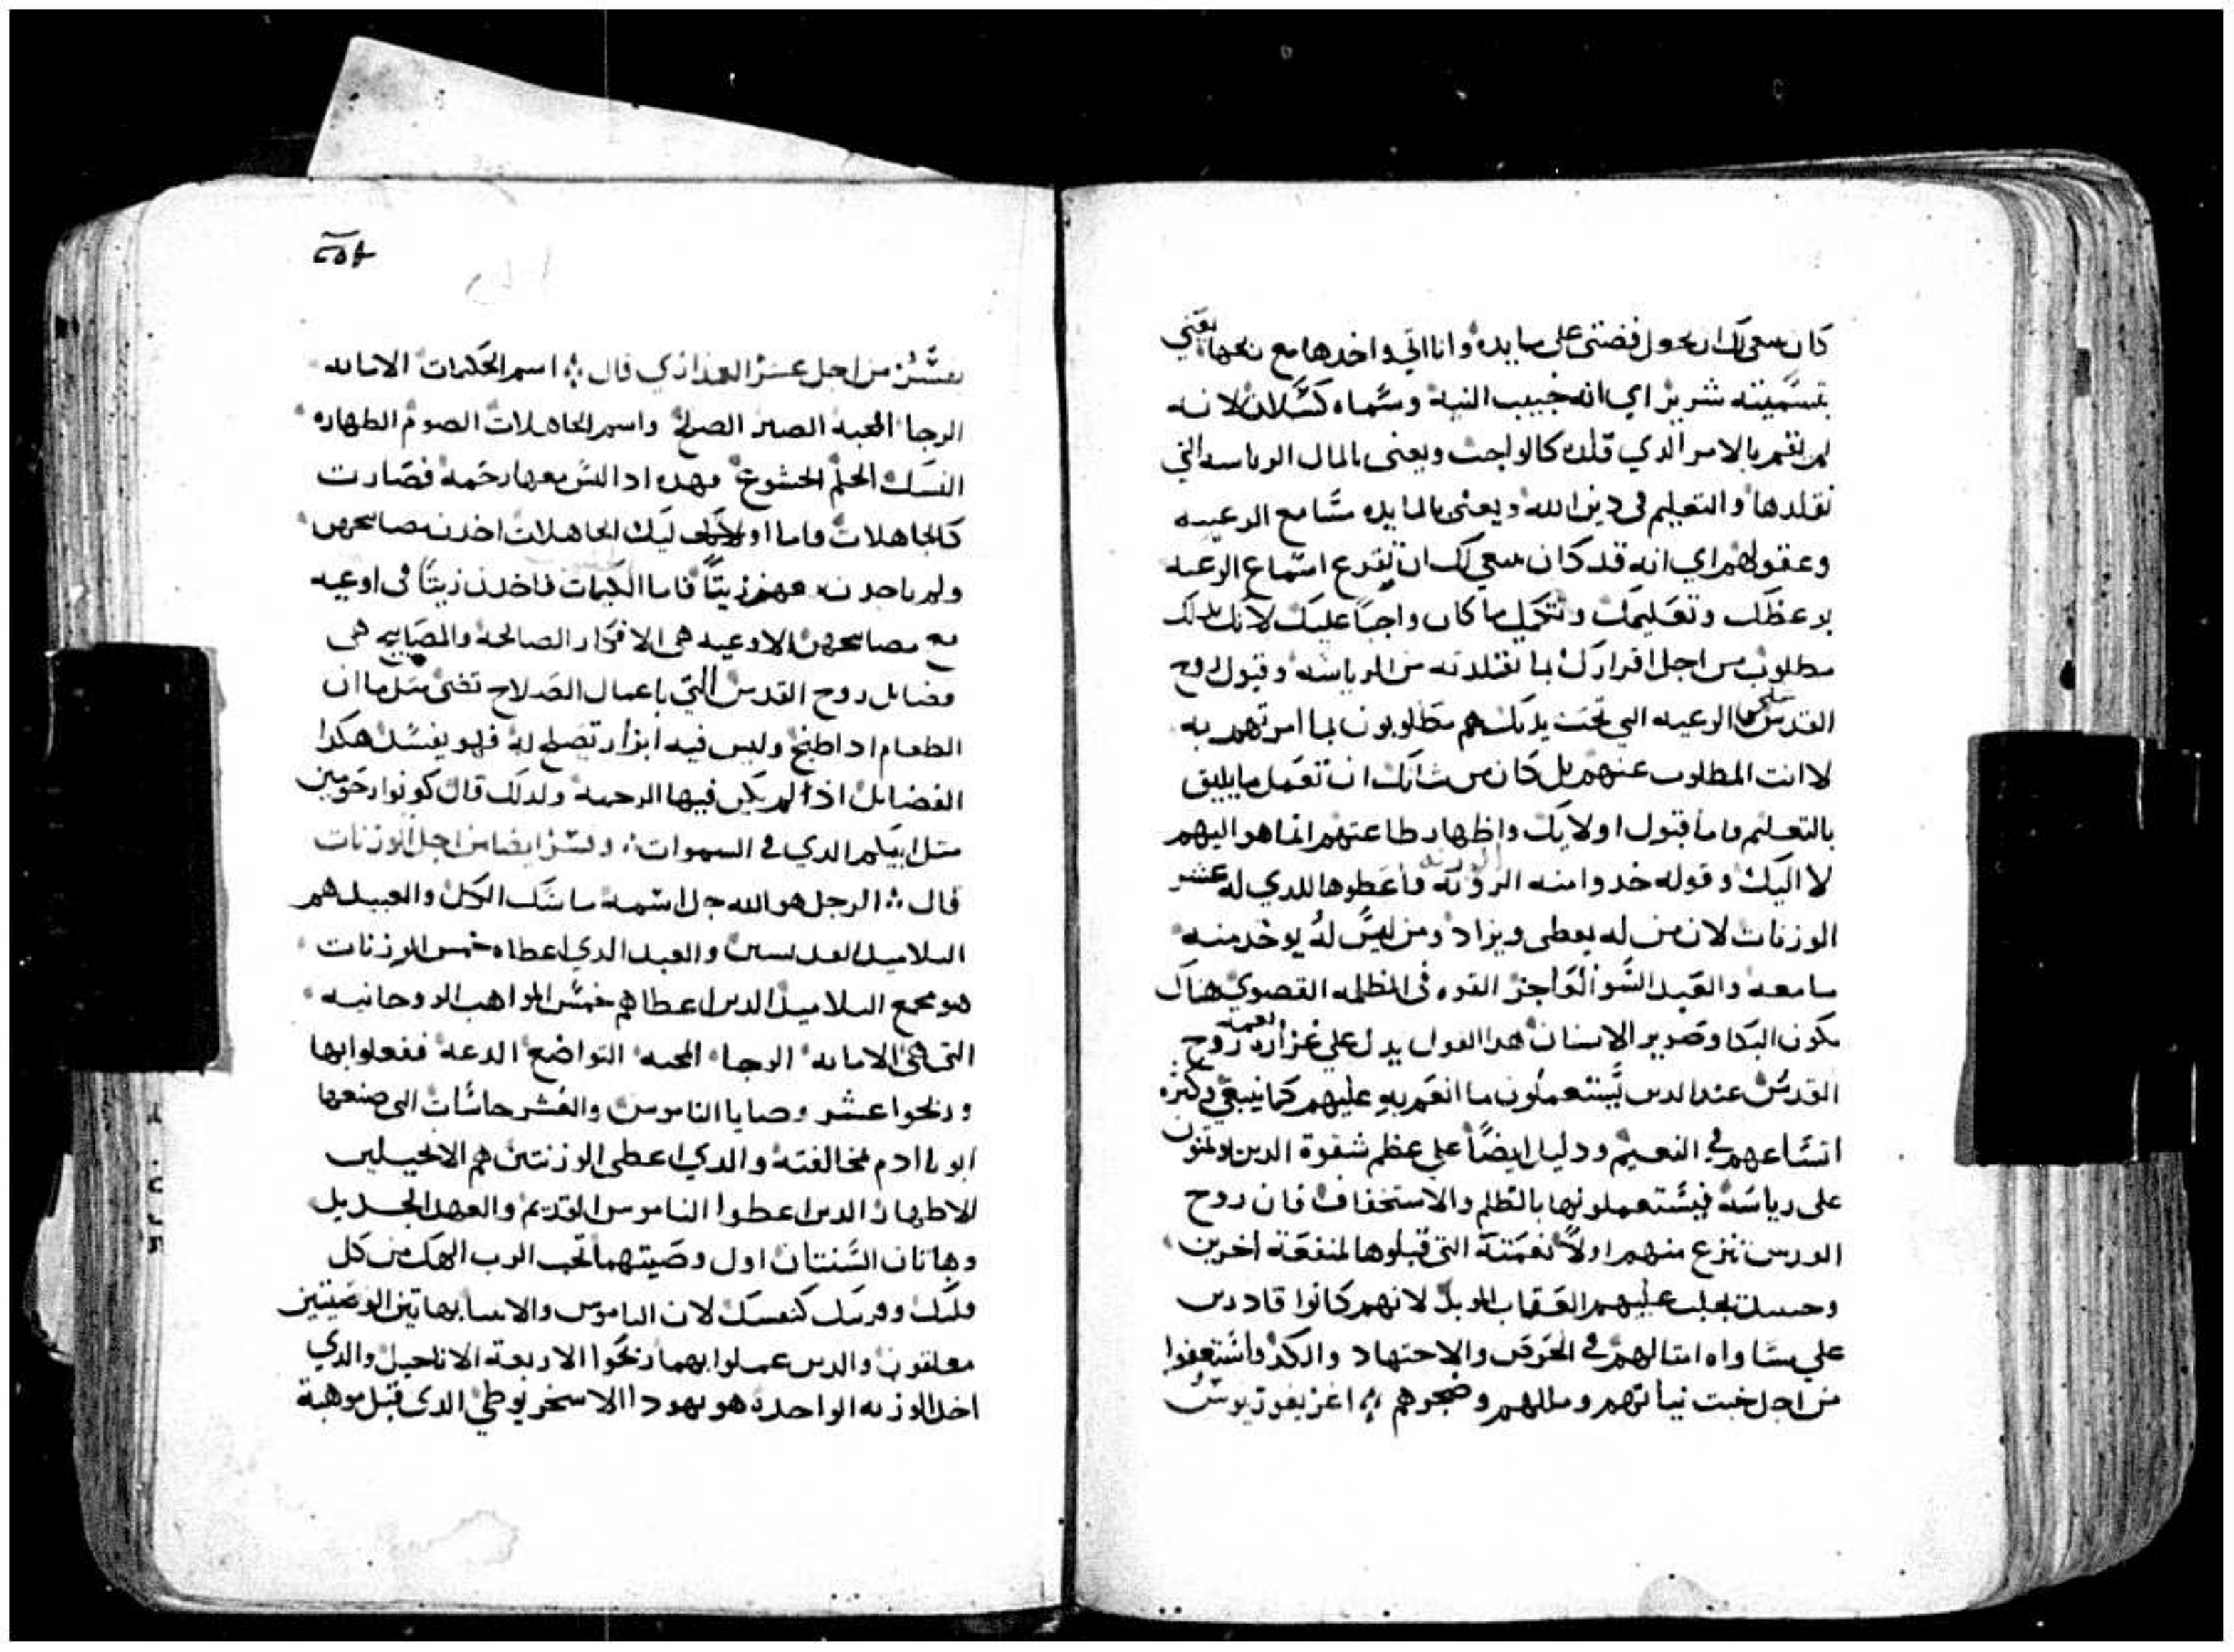 كان ينبغي لك ان تحول فضتي على مايده وانا اتي واخدها مع ربحها يعني
بتسميته شرير اي انه خبيب النية وسماه كسلان لانه
لم يقم بالامر الدي قلده كالواجب ويعني بالمال الرياسه التي
تقلدها والتعليم في دين الله ويعني بالمايده مسامع الرعيه
وعقولهم اي انه قد كان ينبغي لك ان تقرع اسماع الرعيه
بوعظك وتعليمك وتكمل ما كان واجبا عليك لانك بدلك
مطلوب من اجل اقرارك بما تقلدته من الرياسه وقبول روح
القدس على ما الرعيه التي تحت يديك هم مطلوبون بما امرتهم به
لا انت المطلوب عنهم بل كان من شانك ان تعمل ما يليق
بالتعليم فاما قبول اولايك واظهار طاعتهم انما هو اليهم
لا اليك وقوله خدوا منه الوزنه فاعطوها للدي له عشر
الوزنات لان من له يعطى ويزاد ومن ليس له يوخد منه
ما معه والعبد السو القوا خارج القوه في الظلمه القصوي هناك
يكون البكا وصرير الاسنان هدا القول يدل علي غزارة نعمة روح
القدس عند الدين يستعملون ما انعم به عليهم كما ينبغي وكثرة
اتساعهم في النعيم ودليل ايضا علي عظم شقوة الدين يوتمنون
على رياسة فيستعملونها بالظلم والاستخفاف فان روح
القدس تنزع منهم اولا نعمته التي قبلوها لمنفعة اخرين
وحينيد يجلب عليهم العقاب الوبيل لانهم كانوا قادرين
علي مساواه امتالهم في الحرص والاجتهاد والكد واستعفوا
من اجل خبت نياتهم ومللهم وضجرهم ⁘ اغريغوريوس
٢٥٨
يفسر من اجل عشر العداري قال ⁘ اسم الحكيمات الامانه
الرجا المحبه الصبر الصلاة واسم الجاهلات الصوم الطهاره
النسك الحلم الخشوع فهده ادا ليس معها رحمه فصارت
كالجاهلات فاما اوليك الجاهلات اخدن مصابيحهن
ولم ياخدن معهن زيتا فاما الحكيمات فاخدن زيتا في اوعيه
مع مصابيحهن الاوعيه هي الافكار الصالحة والمصابيح هي
فضايل روح القدس التي باعمال الصلاح تضي متل ما ان
الطعام ادا طبخ وليس فيه ابزار تصلح له فهو يفسد هكدا
الفضايل ادا لم يكن فيها الرحمه ولدلك قال كونوا رحومين
متل ابيكم الدي في السموات ⁘ وفسر ايضا من اجل الوزنات
قال ⁘ الرجل هو الله جل اسمه ماسك الكل والعبيد هم
التلاميد القديسين والعبد الدي اعطاه خمس الوزنات
هو مجمع التلاميد الدين اعطاهم خمس المواهب الروحانيه
التي هي الامانه الرجا المحبه التواضع الدعة ففعلوا بها
وربحوا عشر وصايا الناموس والعشر حاسات التي صنعها
ابونا ادم مخالفته والدي اعطي الوزنتين هم الانجيليين
الاطهار الدين اعطوا الناموس القديم والعهد الجديد
وهاتان السنتان اول وصيتهما تحب الرب الهك من كل
قلبك وقريبك كنفسك لان الناموس والانبيا بهاتين الوصيتين
معلقون والدين عملوا بهما ربحوا الاربعة الاناجيل والدي
اخد الوزنه الواحدة هو يهودا الاسخريوطي الدي قبل موهبة